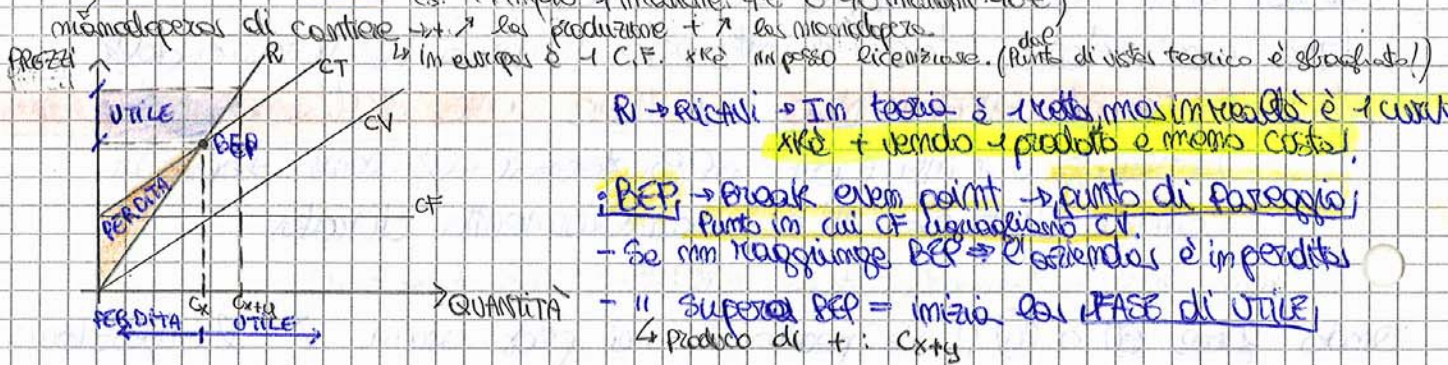 manodopera di cantiere → + ↗ la produzione + ↗ la manodopera
↳ in europa è 1 C.F. xkè nn posso licenziare. (dal Punto di vista teorico è sbagliato!)
PREZZI
R
CT
CV
UTILE
BEP
PERDITA
CF
QUANTITÀ
Cx
Cx+y
PERDITA
UTILE
R → RICAVI → In teoria è 1 retta, ma in realtà è 1 curva
xkè + vendo 1 prodotto e meno costa.
BEP → Break even point → punto di pareggio
Punto in cui CF uguagliano CV.
- Se nn raggiunge BEP ⇒ l'azienda è in perdita
- " supera BEP = inizia la FASE di UTILE
↳ produco di + : Cx+y